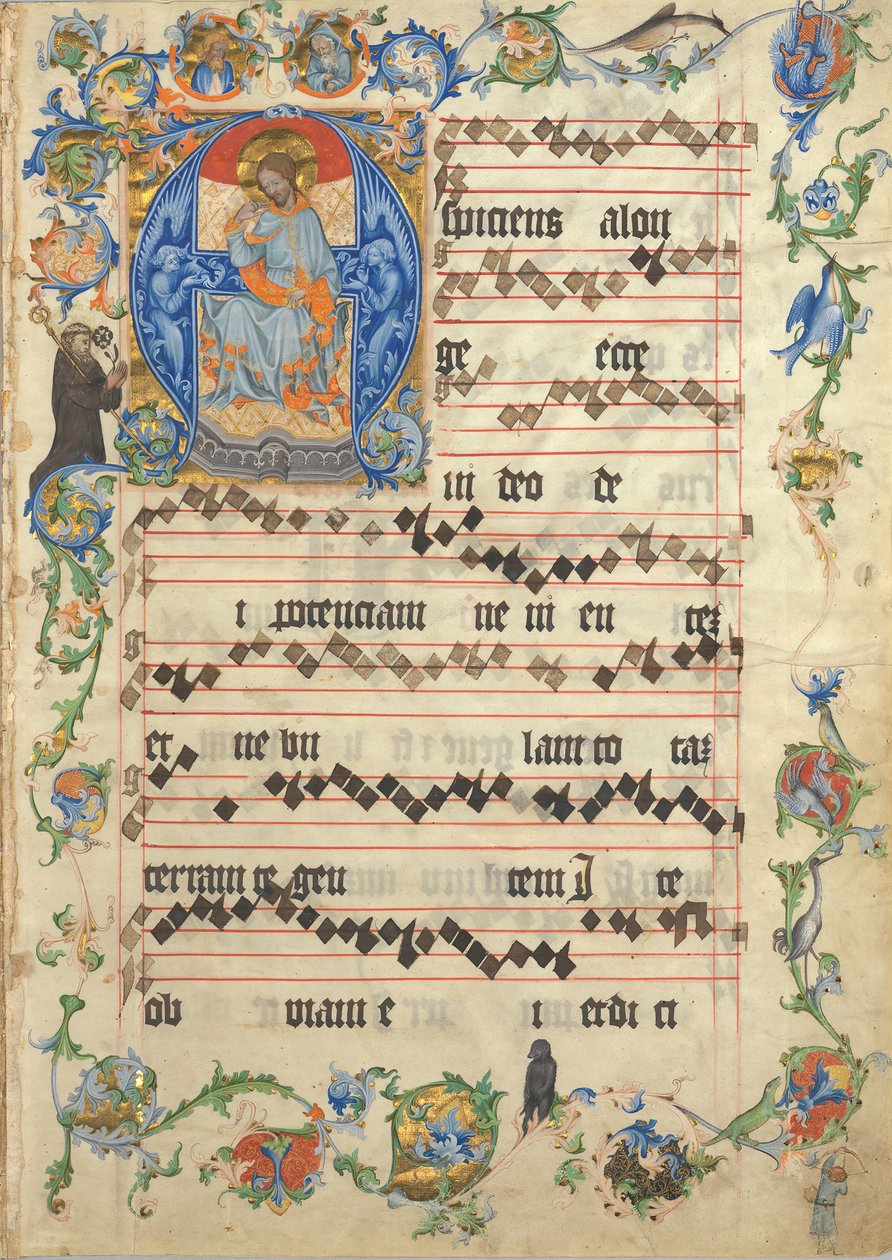 Aspiciens a lon
ge ecce
vi deo de
i potenciam ve ni en teꝫ
et ne bu lam to taꝫ
terram te gen tem I te
ob viam e i et di ci